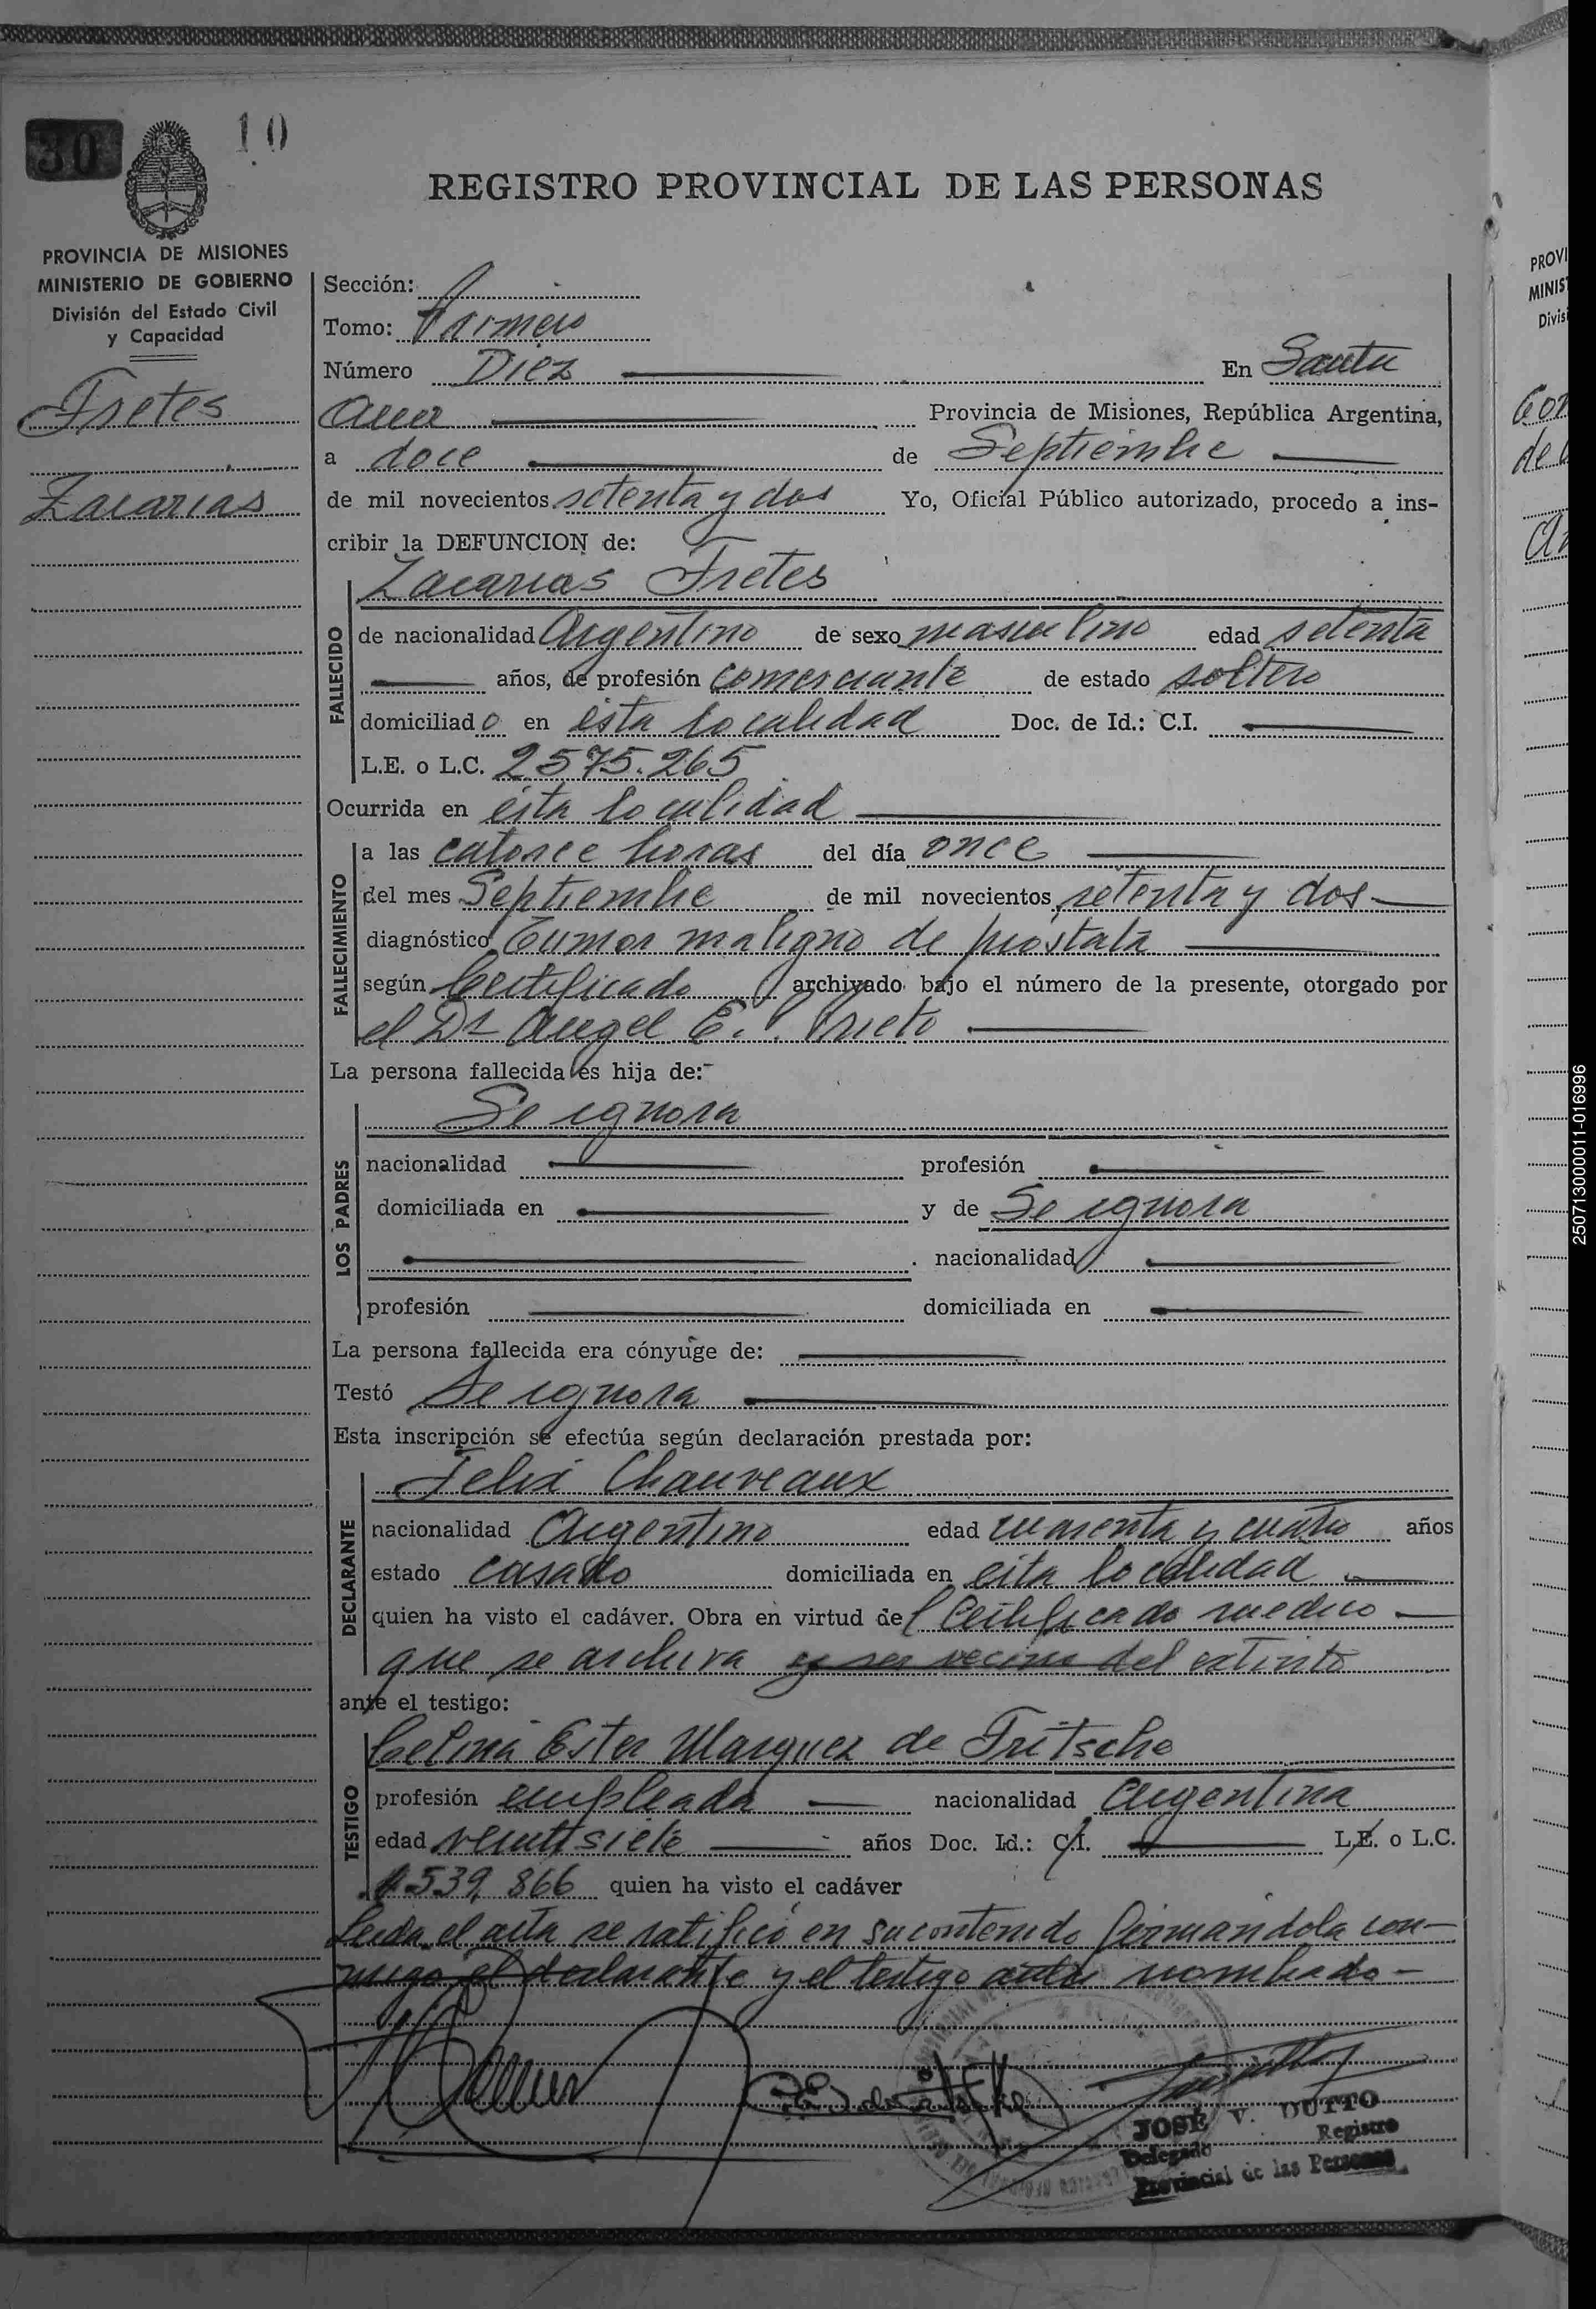 30
10
REGISTRO PROVINCIAL DE LAS PERSONAS
PROVINCIA DE MISIONES
MINISTERIO DE GOBIERNO
División del Estado Civil
y Capacidad
Fretes
Zacarias
Sección:
Tomo: Primero
Número Diez En Santa
Ana Provincia de Misiones, República Argentina,
a doce de Septiembre
de mil novecientos setenta y dos Yo, Oficial Público autorizado, procedo a ins-
cribir la DEFUNCION de:
Zacarias Fretes
FALLECIDO
de nacionalidad Argentino de sexo masculino edad setenta
años, de profesión comerciante de estado soltero
domiciliado en esta localidad Doc. de Id.: C.I.
L.E. o L.C. 2575.265
Ocurrida en esta localidad
FALLECIMIENTO
a las catorce horas del día once
del mes Septiembre de mil novecientos setenta y dos
diagnóstico Tumor maligno de prostata
según Certificado archivado bajo el número de la presente, otorgado por
el Dr Angel E. Prieto
La persona fallecida es hija de:
LOS PADRES
Se ignora
nacionalidad profesión
domiciliada en y de Se ignora
nacionalidad
profesión domiciliada en
La persona fallecida era cónyuge de:
Testó Se ignora
Esta inscripción se efectúa según declaración prestada por:
DECLARANTE
Felix Chauveaux
nacionalidad Argentino edad cuarenta y cuatro años
estado casado domiciliada en esta localidad
quien ha visto el cadáver. Obra en virtud del Certificado medico
que se archiva y ser vecino del extinto
ante el testigo:
TESTIGO
Celina Ester Marquez de Fritsche
profesión empleada nacionalidad Argentina
edad veintisiete años Doc. Id.: C.I. L.E. o L.C.
4.539.866 quien ha visto el cadáver
Leida el acta se ratificó en su contenido firmandola con-
migo el declarante y el testigo antes nombrado
JOSÉ V. DUTTO
Delegado Registro
Provincial de las Personas
PROVI
MINIS
Divis
250713000011-016996